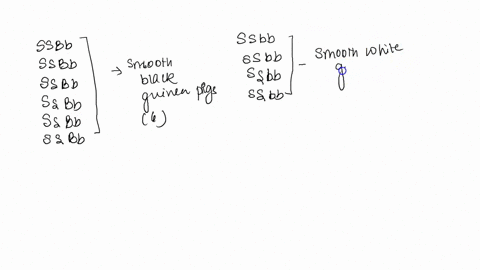 SSBb
SSBb
SSBb
SsBb
SsBb
SsBb
→ Smooth
black
guinea pigs
(6)
SSbb
SSbb
Ssbb
Ssbb
– Smooth white
g